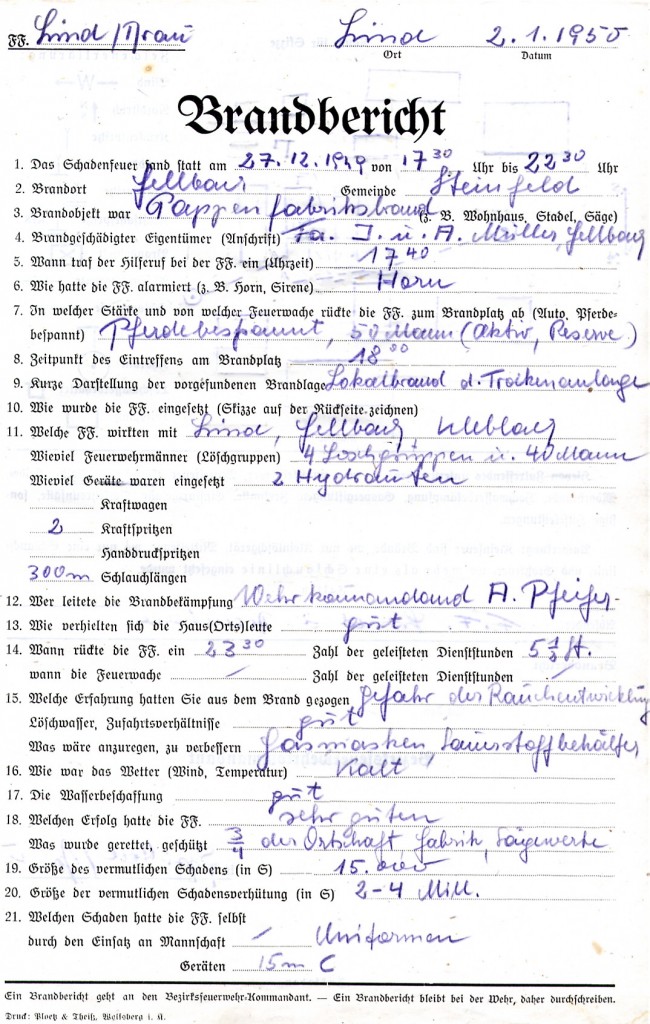 FF. Lind/Drau Lind 2.1.1950
Ort Datum
Brandbericht
1. Das Schadenfeuer fand statt am 27.12.1949 von 17 30 Uhr bis 22 30 Uhr
2. Brandort Fellbach Gemeinde Steinfeld
3. Brandobjekt war Pappenfabriksbrand (z. B. Wohnhaus, Stadel, Säge)
4. Brandgeschädigter Eigentümer (Anschrift) Fa. J. u. A. Müller, Fellbach
5. Wann traf der Hilferuf bei der FF. ein (Uhrzeit) 17 40
6. Wie hatte die FF. alarmiert (z. B. Horn, Sirene) Horn
7. In welcher Stärke und von welcher Feuerwache rückte die FF. zum Brandplatz ab (Auto, Pferde-
bespannt) Pferdebespannt, 50 Mann (Aktiv, Reserve)
8. Zeitpunkt des Eintreffens am Brandplatz 18 00
9. Kurze Darstellung der vorgefundenen Brandlage Lokalbrand d. Trockenanlage
10. Wie wurde die FF. eingesetzt (Skizze auf der Rückseite zeichnen)
11. Welche FF. wirkten mit Lind, Fellbach, Kleblach
Wieviel Feuerwehrmänner (Löschgruppen) 4 Löschgruppen u. 40 Mann
Wieviel Geräte waren eingesetzt 2 Hydranten
Kraftwagen
2 Kraftspritzen
Handdruckspritzen
300m Schlauchlängen
12. Wer leitete die Brandbekämpfung Wehrkommandand A. Pfeifer
13. Wie verhielten sich die Haus(Orts)leute gut
14. Wann rückte die FF. ein 23 30 Zahl der geleisteten Dienststunden 5 1/2 St.
wann die Feuerwache / Zahl der geleisteten Dienststunden /
15. Welche Erfahrung hatten Sie aus dem Brand gezogen Gefahr der Rauchentwicklung
Löschwasser, Zufahrtsverhältnisse gut
Was wäre anzuregen, zu verbessern Gasmasken Sauerstoffbehälter
16. Wie war das Wetter (Wind, Temperatur) Kalt
17. Die Wasserbeschaffung gut
18. Welchen Erfolg hatte die FF. sehr guten
Was wurde gerettet, geschützt 3/4 der Ortschaft Fabrik, Sägewerke
19. Größe des vermutlichen Schadens (in S) 15.000
20. Größe der vermutlichen Schadensverhütung (in S) 2-4 Mill.
21. Welchen Schaden hatte die FF. selbst
durch den Einsatz an Mannschaft / Uniformen
Geräten 15m C
Ein Brandbericht geht an den Bezirksfeuerwehr-Kommandant. — Ein Brandbericht bleibt bei der Wehr, daher durchschreiben.
Druck: Ploetz & Theiß, Wolfsberg i. K.